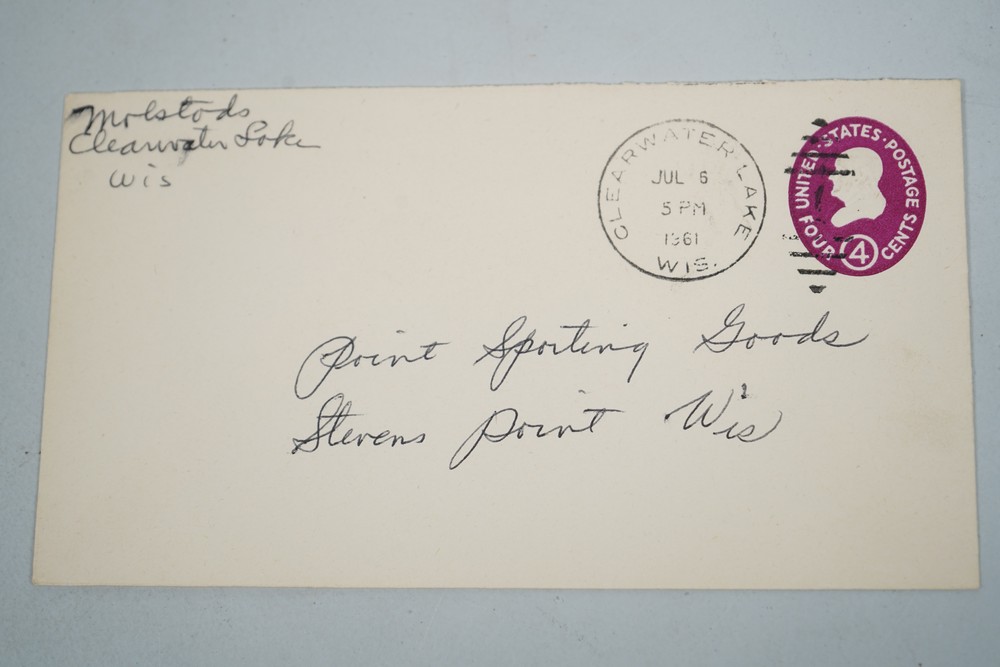 Molstods
Clearwater Lake
Wis
CLEARWATER LAKE
JUL 6
5 PM
1961
WIS.
UNITED STATES POSTAGE
FOUR 4 CENTS
Point Sporting Goods
Stevens Point Wis